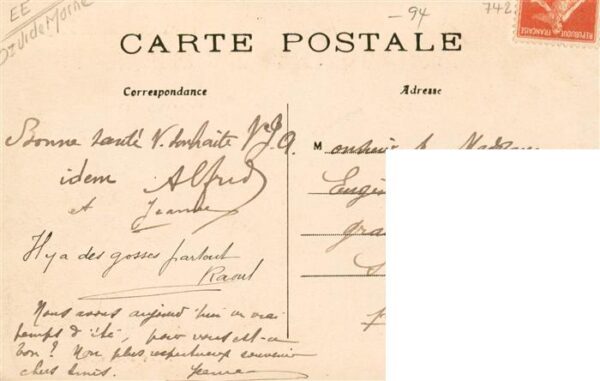 EE
- 94
742
REPUBLIQUE FRANÇAISE
CARTE POSTALE
Correspondance
Adresse
Bonne santé V. souhaite
idem Alfred
et Jeanne
Il y a des gosses partout
Raoul
Nous avons aujourd'hui un vrai
temps d'été, pour vous est-il
bon? Mon plus respectueux souvenir
chers amis.
M onsieur & Madame
Eugè
gra